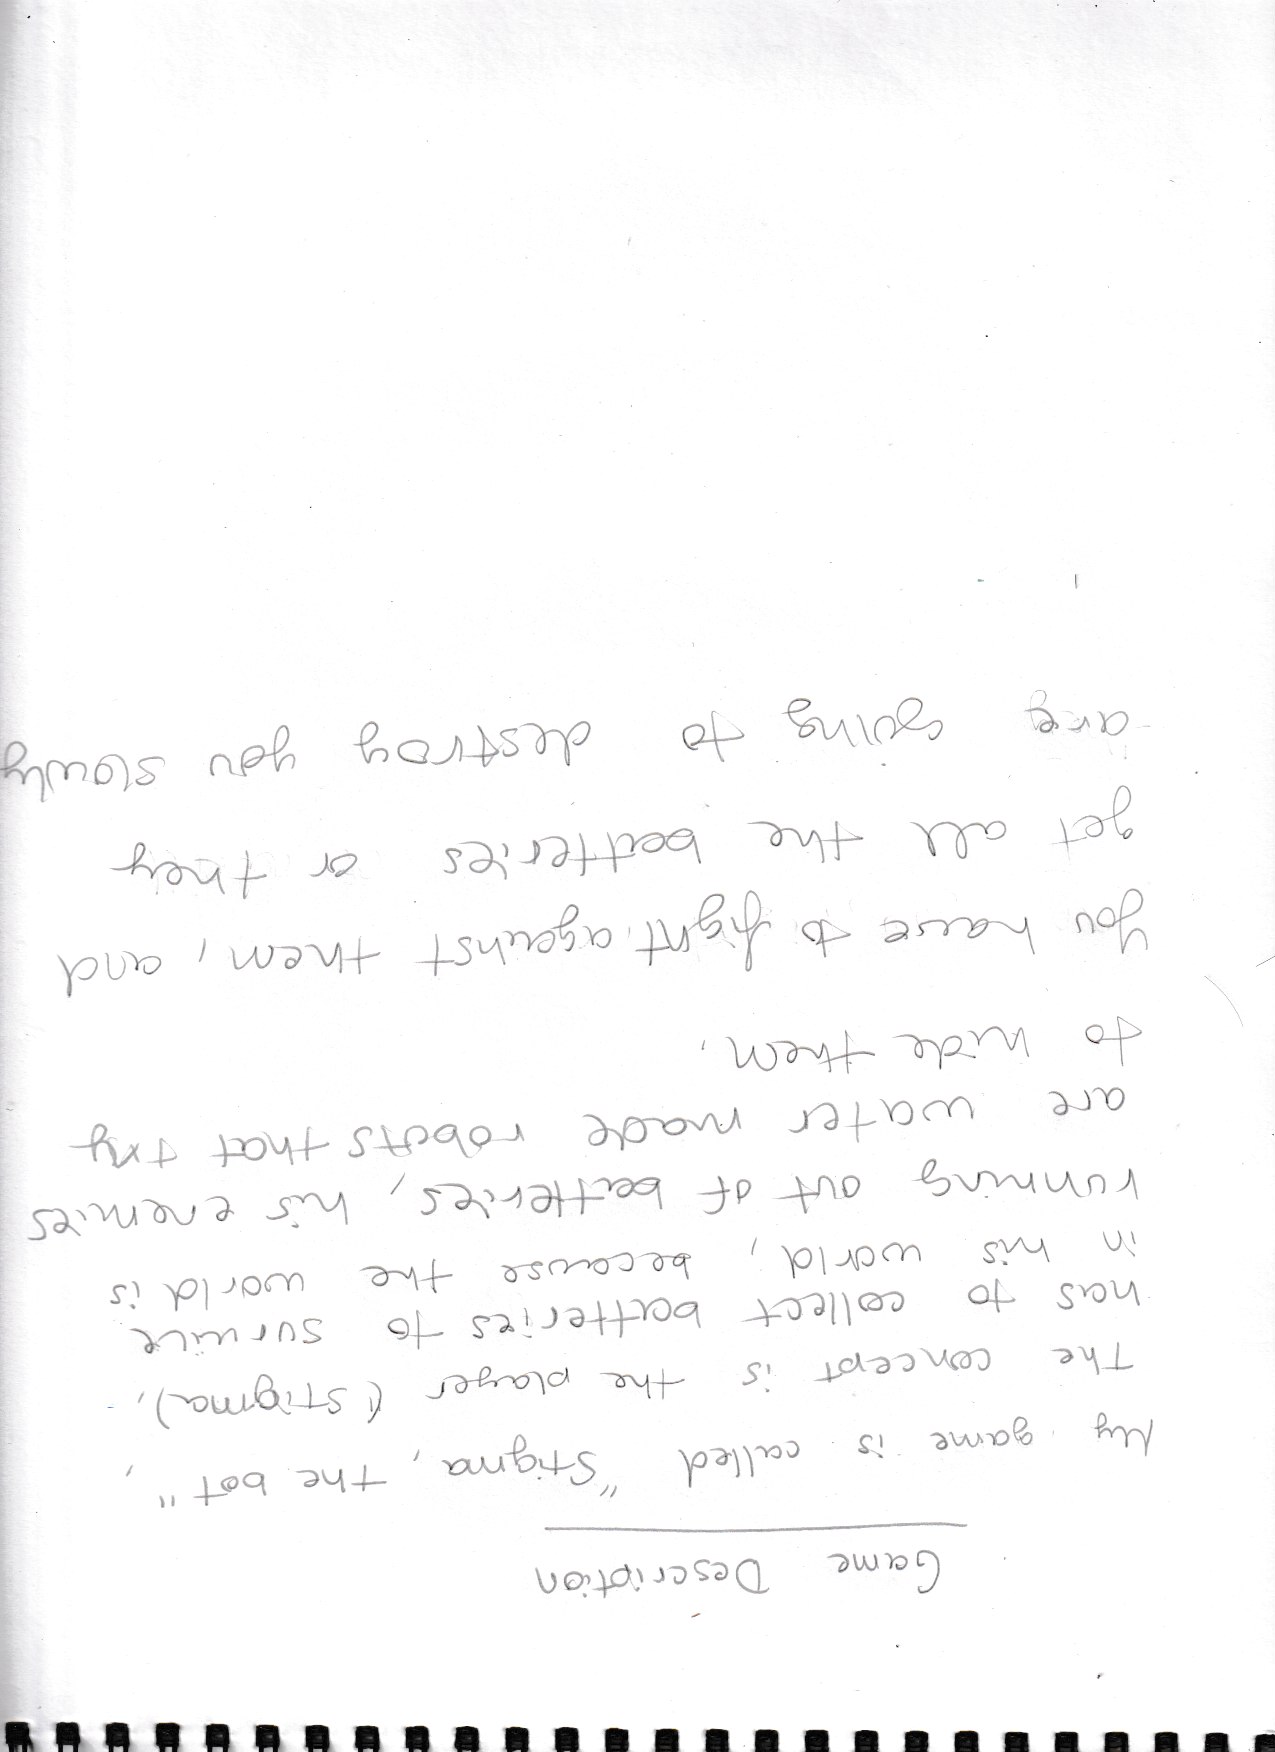 Game Description
My game is called "Stigma, the bot",
The concept is the player (Stigma),
has to collect batteries to survive
in his world, because the world is
running out of batteries, his enemies
are water made robots that try
to hide them.
You have to fight against them, and
get all the batteries or they
are going to destroy you slowly